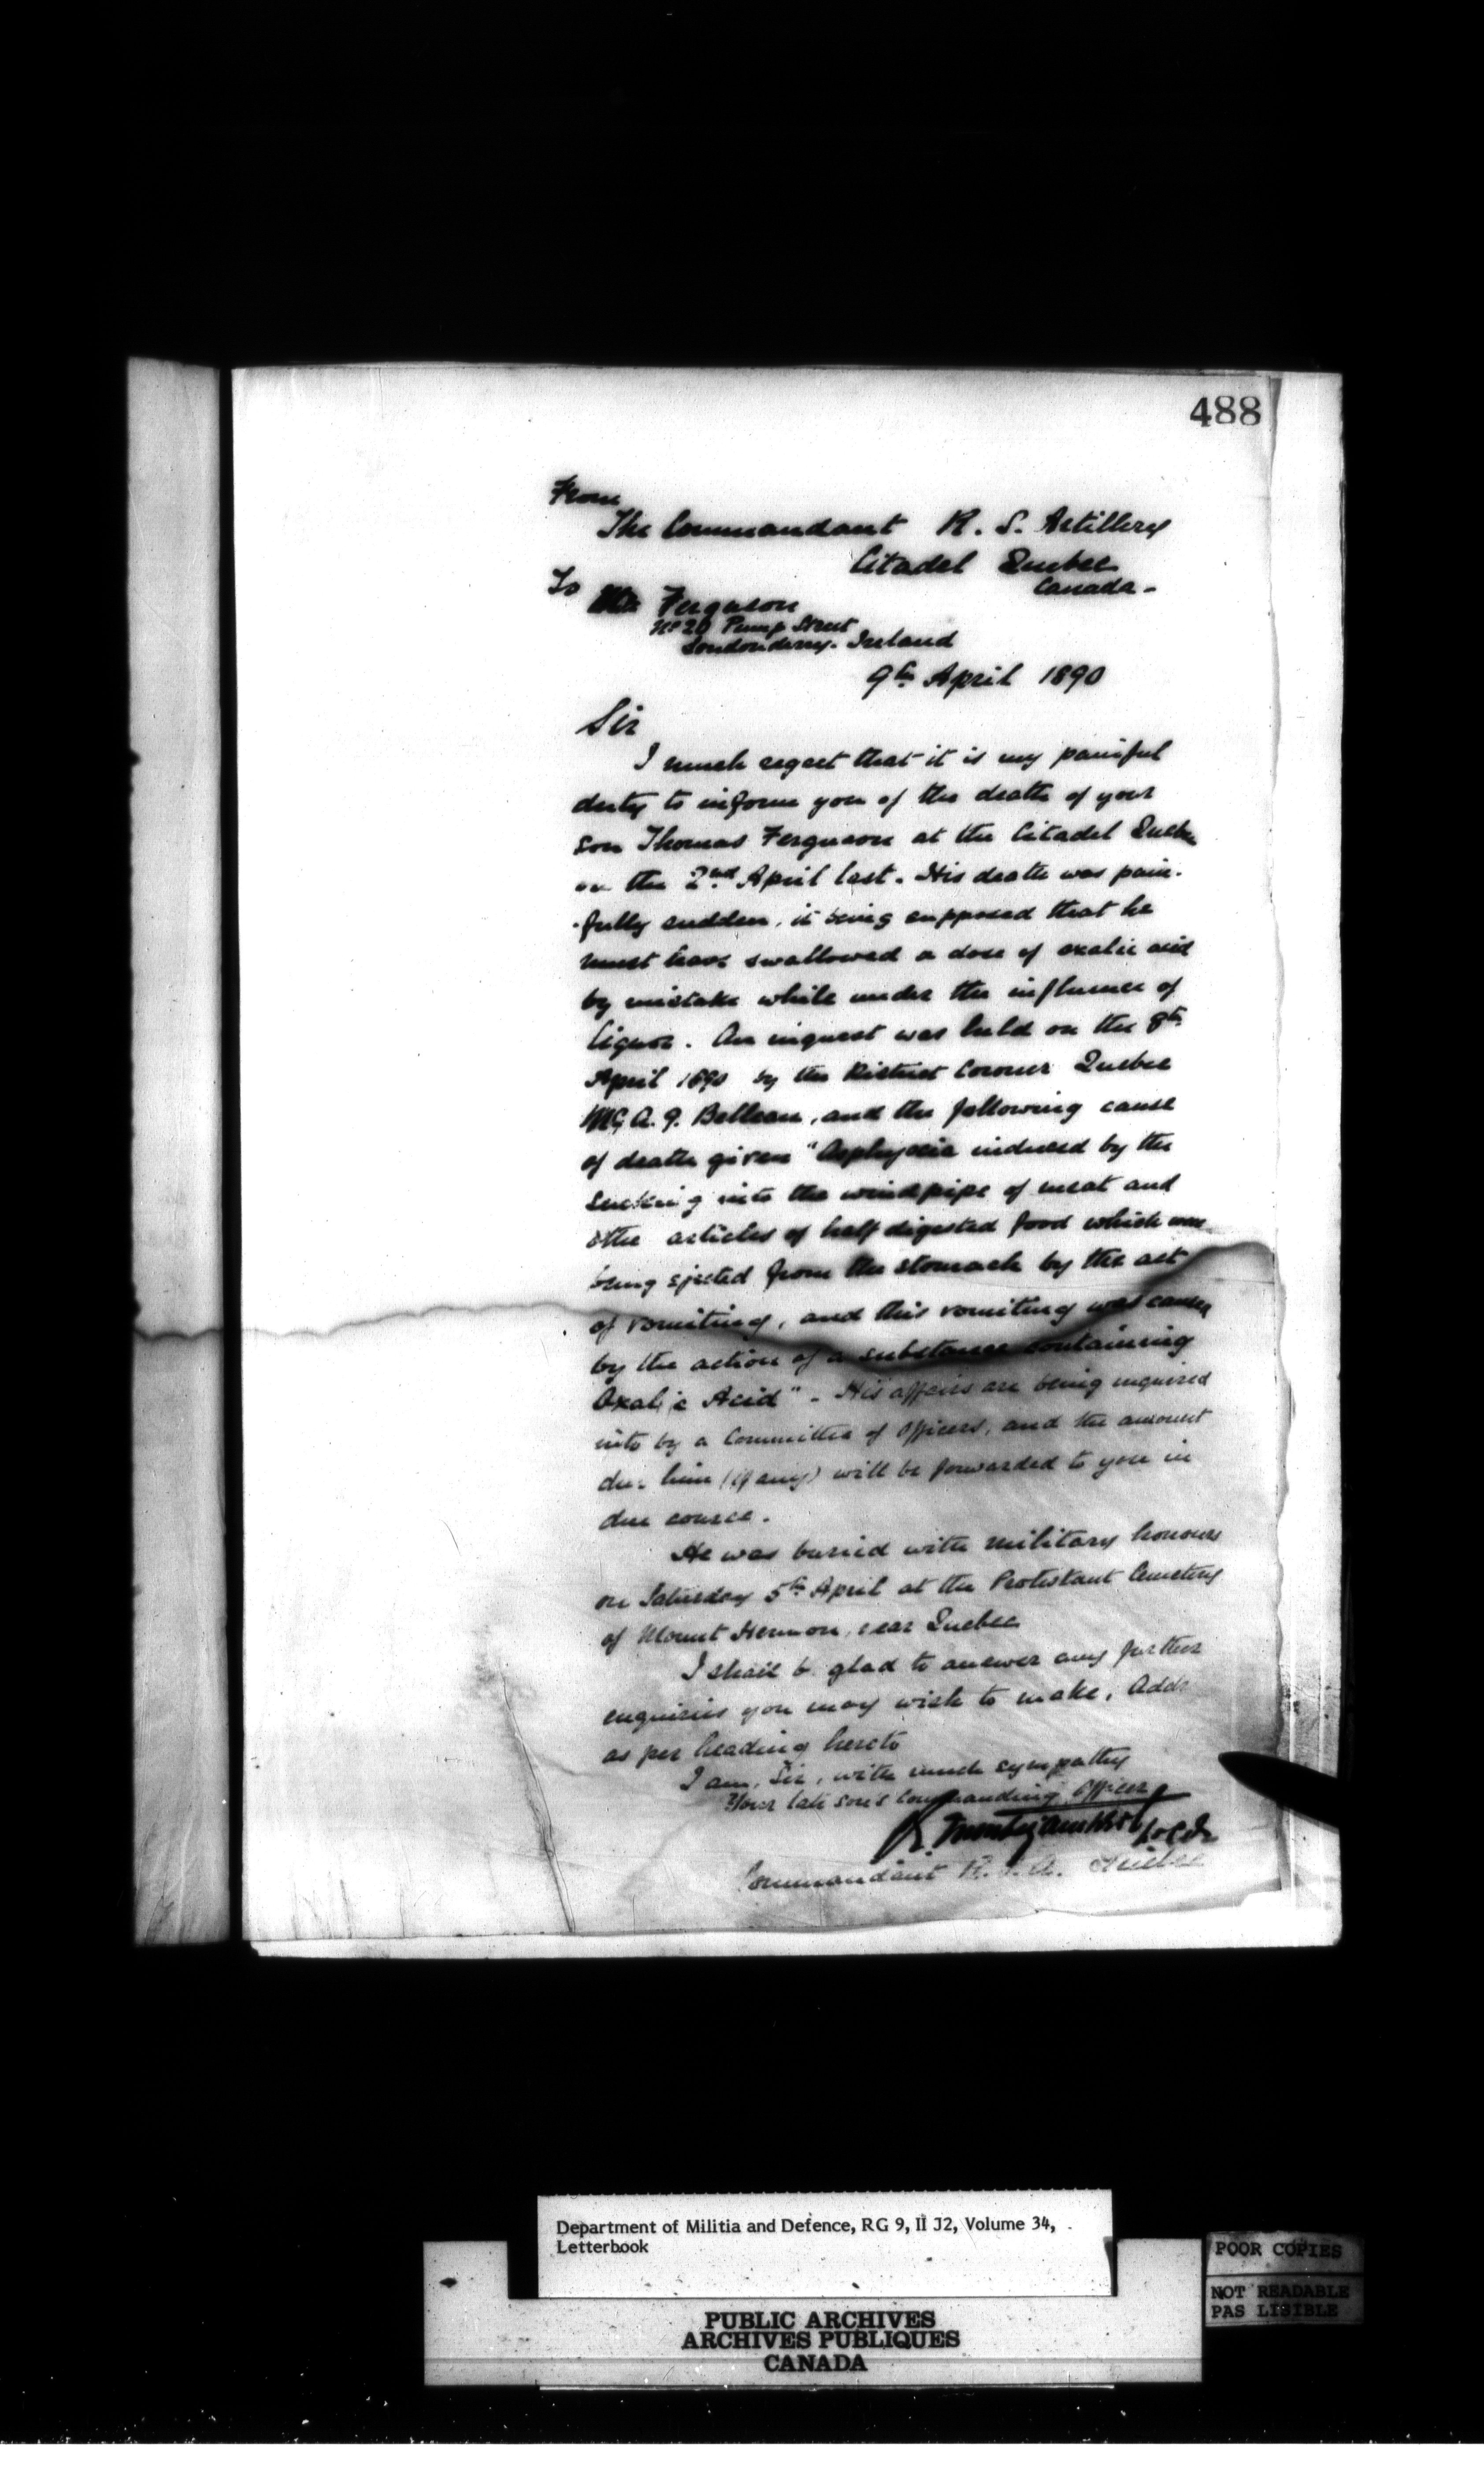 488
From
The Commandant R. S. Artillery
Citadel Quebec
Canada -
To Mr Ferguson
No 20 Pump Street
Londonderry. Ireland
9th April 1890
Sir
I much regret that it is my painful
duty to inform you of the death of your
son Thomas Ferguson at the Citadel Quebec
on the 2nd April last. His death was pain-
-fully sudden, it being supposed that he
must have swallowed a dose of oxalic acid
by mistake while under the influence of
liquor. An inquest was held on the 8th
April 1890 by the District Coroner Quebec
Mr A. G. Belleau, and the following cause
of death given "Asphyxia induced by the
sucking into the windpipe of meat and
othe articles of half digested food which was
being ejected from the stomach by the act
of vomiting, and this vomiting was caused
by the action of a substance containing
Oxalic Acid" - His affairs are being inquired
into by a Committee of Officers, and the amount
due him (if any) will be forwarded to you in
due course.
He was buried with military honours
on Saturday 5th April at the Protestant Cemetery
of Mount Hermon, near Quebec
I shall be glad to answer any further
enquiries you may wish to make, Addr
as per heading hereto
I am, Sir, with much sympathy
Your late son's Commanding Officer
Lt Col
Commandant R. S. A. Quebec
Department of Militia and Defence, RG 9, II J2, Volume 34,
Letterbook
POOR COPIES
NOT READABLE
PAS LISIBLE
PUBLIC ARCHIVES
ARCHIVES PUBLIQUES
CANADA